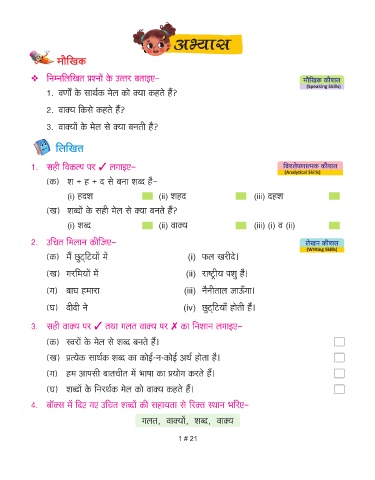 अभ्यास
मौखिक
❖ निम्नलिखित प्रश्नों के उत्तर बताइए–
मौखिक कौशल
(Speaking Skills)
1. वर्णों के सार्थक मेल को क्या कहते हैं?
2. वाक्य किसे कहते हैं?
3. वाक्यों के मेल से क्या बनती है?
लिखित
1. सही विकल्प पर ✓ लगाइए–
विश्लेषणात्मक कौशल
(Analytical Skills)
(क) श + ह + द से बना शब्द है–
(i) हदश (ii) शहद (iii) दहश
(ख) शब्दों के सही मेल से क्या बनते हैं?
(i) शब्द (ii) वाक्य (iii) (i) व (ii)
2. उचित मिलान कीजिए–
लेखन कौशल
(Writing Skills)
(क) मैं छुट्टियों में (i) फल खरीदे।
(ख) गरमियों में (ii) राष्ट्रीय पशु है।
(ग) बाघ हमारा (iii) नैनीताल जाऊँगा।
(घ) दीदी ने (iv) छुट्टियाँ होती हैं।
3. सही वाक्य पर ✓ तथा गलत वाक्य पर ✗ का निशान लगाइए–
(क) स्वरों के मेल से शब्द बनते हैं।
(ख) प्रत्येक सार्थक शब्द का कोई-न-कोई अर्थ होता है।
(ग) हम आपसी बातचीत में भाषा का प्रयोग करते हैं।
(घ) शब्दों के निरर्थक मेल को वाक्य कहते हैं।
4. बॉक्स में दिए गए उचित शब्दों की सहायता से रिक्त स्थान भरिए–
गलत, वाक्यों, शब्द, वाक्य
1 # 21